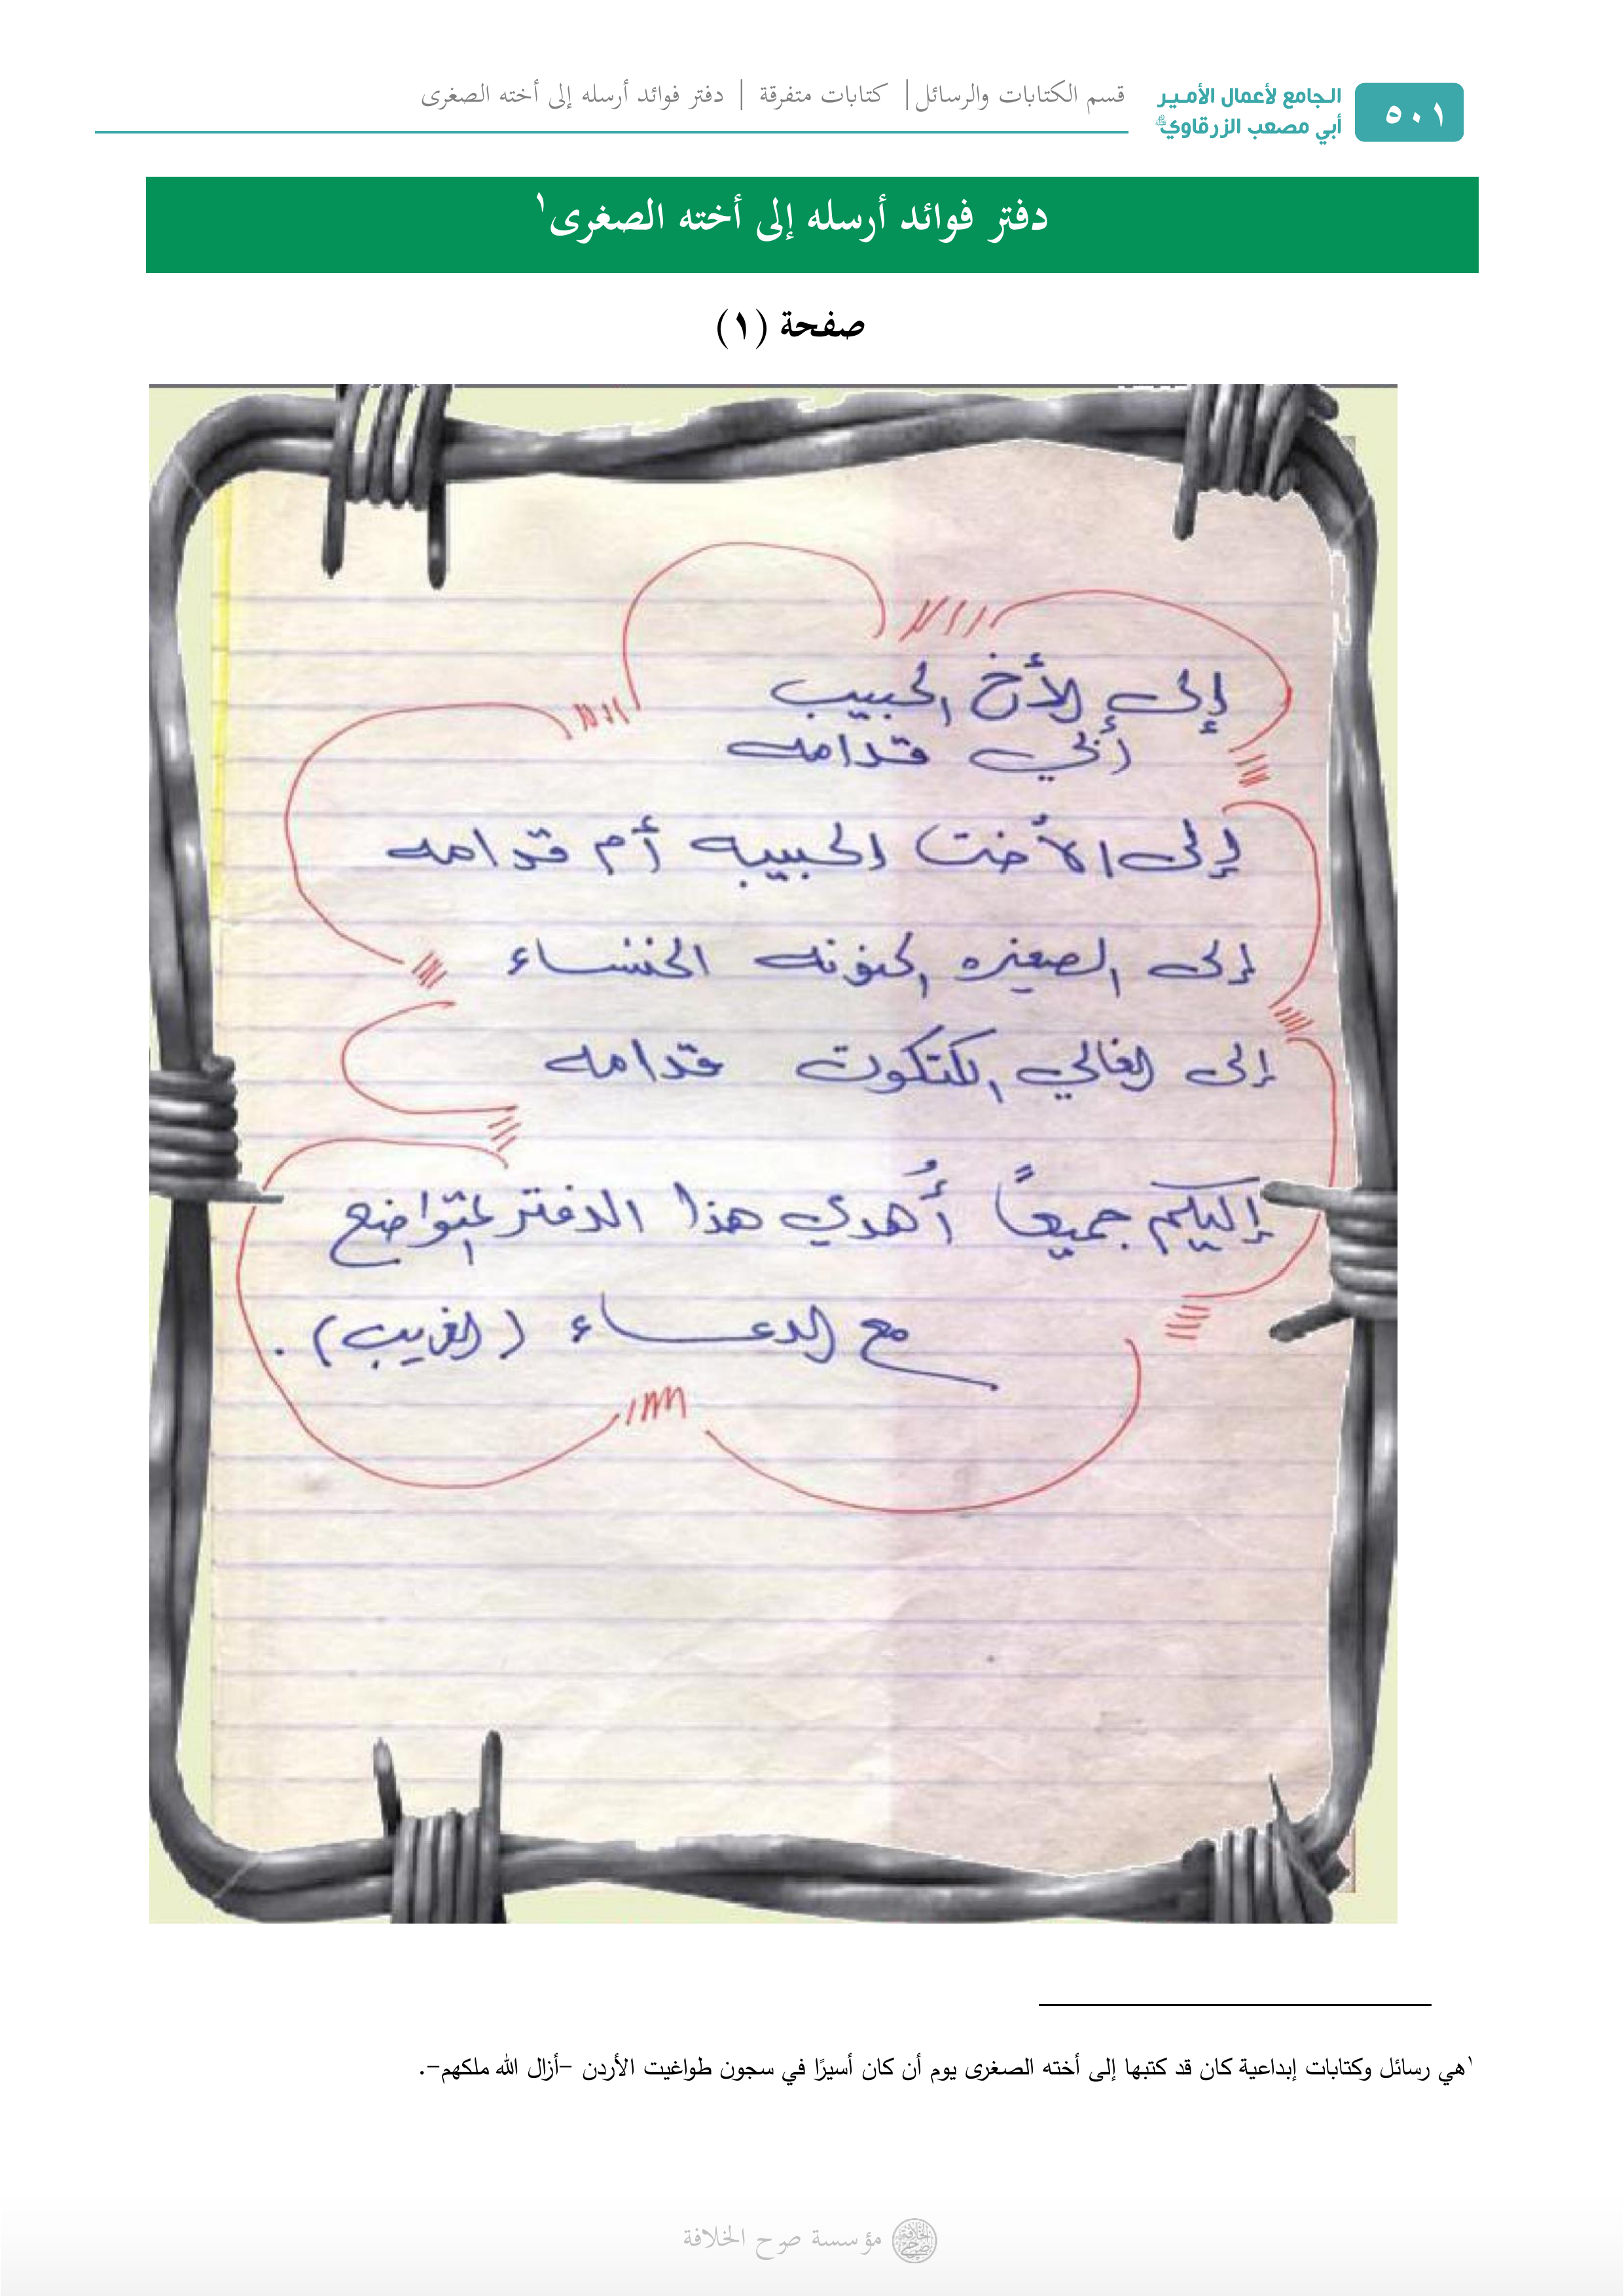 ٥٠١
الجامع لأعمال الأمير
أبي مصعب الزرقاوي
قسم الكتابات والرسائل | كتابات متفرقة | دفتر فوائد أرسله إلى أخته الصغرى
دفتر فوائد أرسله إلى أخته الصغرى١
صفحة (١)
إلى الأخ الحبيب
أبي قدامه
إلى الأخت الحبيبه أم قدامه
إلى الصغيره الحنونه الخنساء
إلى الغالي الكتكوت قدامه
إليكم جميعاً أُهدي هذا الدفتر المتواضع
مع الدعاء (الغريب).
١هي رسائل وكتابات إبداعية كان قد كتبها إلى أخته الصغرى يوم أن كان أسيرًا في سجون طواغيت الأردن –أزال الله ملكهم–.
مؤسسة صرح الخلافة